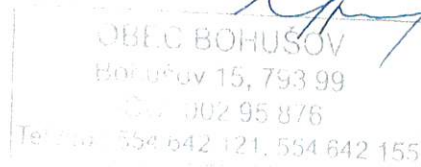 OBEC BOHUŠOV
Bohušov 15, 793 99
002 95 876
554 642 121, 554 642 155